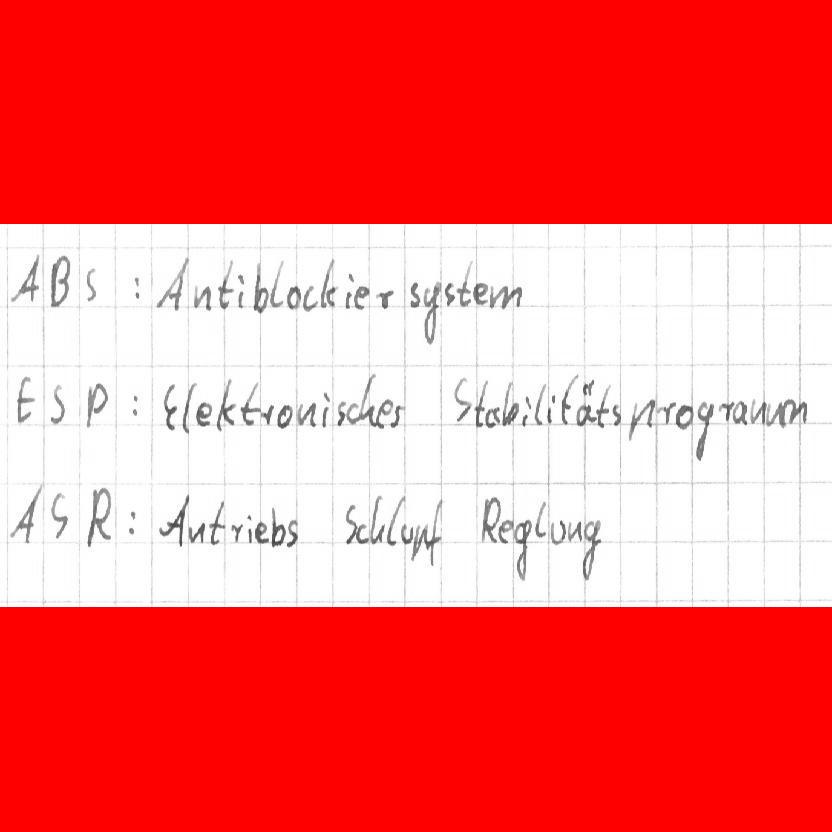 ABS : Antiblockiersystem
ESP : Elektronisches Stabilitätsprogramm
ASR : Antriebs Schlupf Reglung